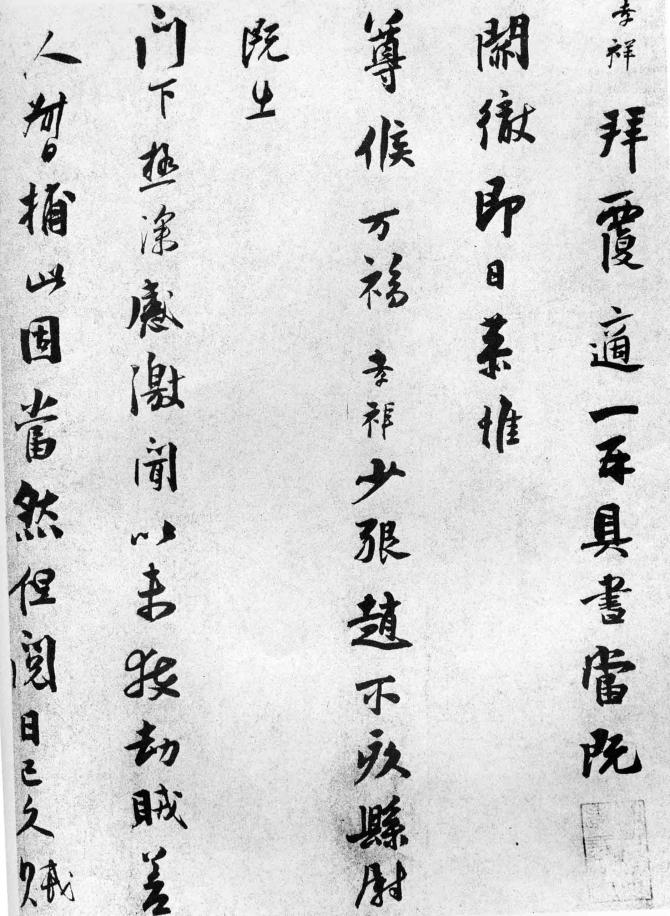 孝祥拜覆適一再具書當既
關徹即日恭惟
尊候万福孝祥少張趙不疚縣尉
既出
門下極深感激聞以未獲劫賊差
人督捕此固當然但閱日已久賊